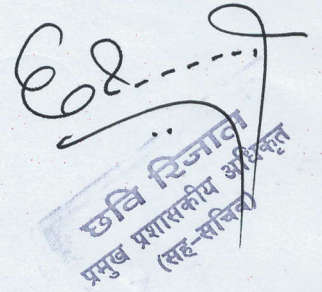 छवि रिजाल
प्रमुख प्रशासकीय अधिकृत
(सह-सचिव)